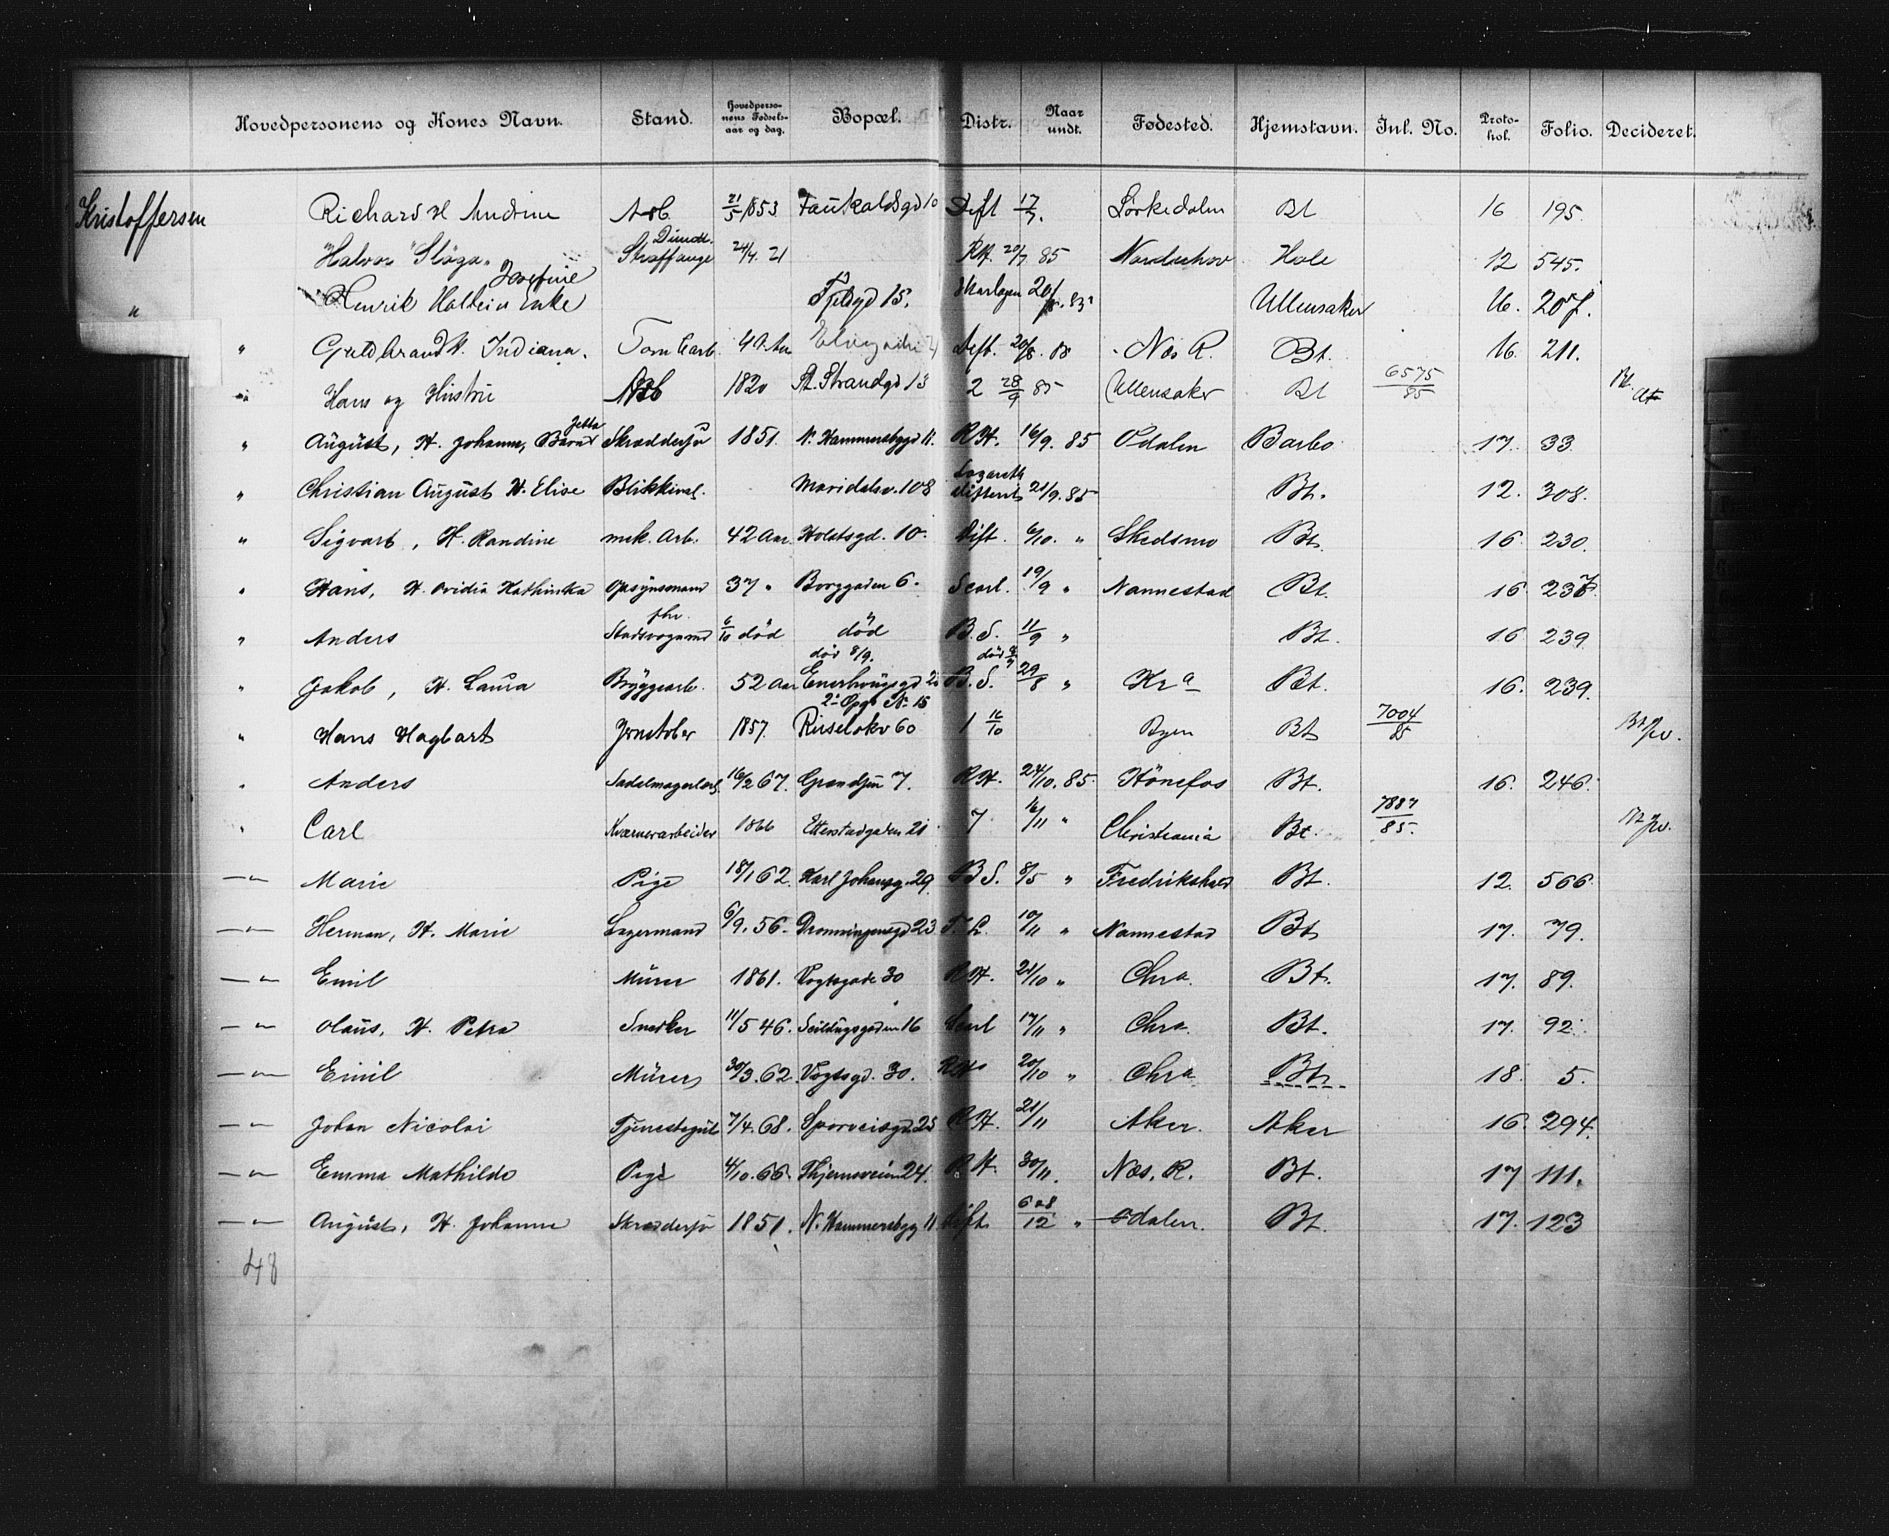 Hovedpersonens og Kones Navn. Stand. Hovedpersonens Fødselsaar og dag. Bopæl. Distr. Naar undt. Fødested. Hjemstavn. Jnl. No. Protohol. Folio. Decideret.
Kristoffersen Richard H Andrine Arb. 21/5 1853 10 Dift 17/7. Sørkedalen Bt 16 195.
Halvor Straffange 24/4. 21 RH. 20/7 85 Norderhov Hole 12 545.
" Henrik Enke Josefine 15. 20/ Ullensaker 16. 207.
" Guldbrand H. Indiana. 40 Aar Dift. 20/8. Næs R. Bt. 16. 211.
" Hans og Hustru Arb 1820 St. Strandgd 13 2 28/9 85 Ullensaker Bt 6575/85
" August, H. Johanne, Barn Jetta Skrædersv 1851. N. Hammersbggd 11. RH. 16/9. 85 Odalen Barbo 17. 33.
" Christian August H. Elise Blikkensl. Maridalsv. 108 Lazareth 21/9. 85 Bt. 12. 308.
" Sigvart, H. Randine mek. Arb. 42 Aar Holstsgd. 10. Dift. 6/10. " Skedsmo Bt. 16. 230.
" Hans, H. Ovidia Kathinka Opsynsmand 37 " Borggaden 6. Scarl. 19/9 " Nannestad Bt. 16 237.
" Anders fhv. 6/10 død død B. S. 11/9 " Bt. 16 239.
" Jakob, H. Laura Bryggearb. 52 Aar død 8/9. Enerhougsgd 20 2den Opg. No. 15 B. S. 29/8 " Kra Bt. 16. 239.
" Hans Hagbart Jernstøber 1857. Ruseløkv 60 1 16/10 Byen Bt 7004/85
" Anders Sadelmagerlærl. 16/2 67. Grændsen 7. RH. 24/10. 85. Hönefos Bt. 16. 246.
" Carl Kværnerarbeider 1866 Etterstadgaden 21 7 16/11 " Christiania Bt. 7887/85.
— " — Marie Pige 18/1 62. Karl Johansg. 29. B S. 8/5 " Fredrikshald Bt. 12. 566.
— " — Herman, H. Marie Lagermand 6/9. 56. Dronningensgd 23 10/11 " Nannestad Bt 17. 79.
— " — Emil Murer 1861. Vogtsgade 30 RH. 21/10 " Chra. Bt. 17. 89.
— " — Olaus, H. Petra Snedker 11/5 46. Seildugsgaden 16 Scarl 17/11 " Chra. Bt. 17. 92.
— " — Emil Murer 30/3. 62. Vogtsgd. 30. RH 20/10 " Chra. Bt. 18. 5.
— " — Johan Nicolai Tjenestegut 7/4. 68. Sporveisgd 25 RH. 21/11 Aker. Aker 16. 294.
— " — Emma Mathilde Pige 4/10. 66. Thjernsveien 24. RH. 30/11. Næs. R. Bt. 17 111.
— " — August, H. Johanne Skrædersv 1851. N. Hammersbgg 11 Dift. 6 08/12 " Odalen. Bt. 17. 123
48